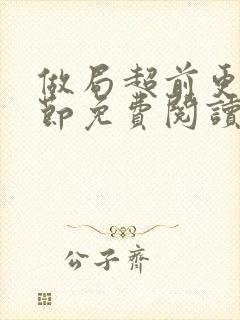 做局超前更
節免費閱讀
公子齊